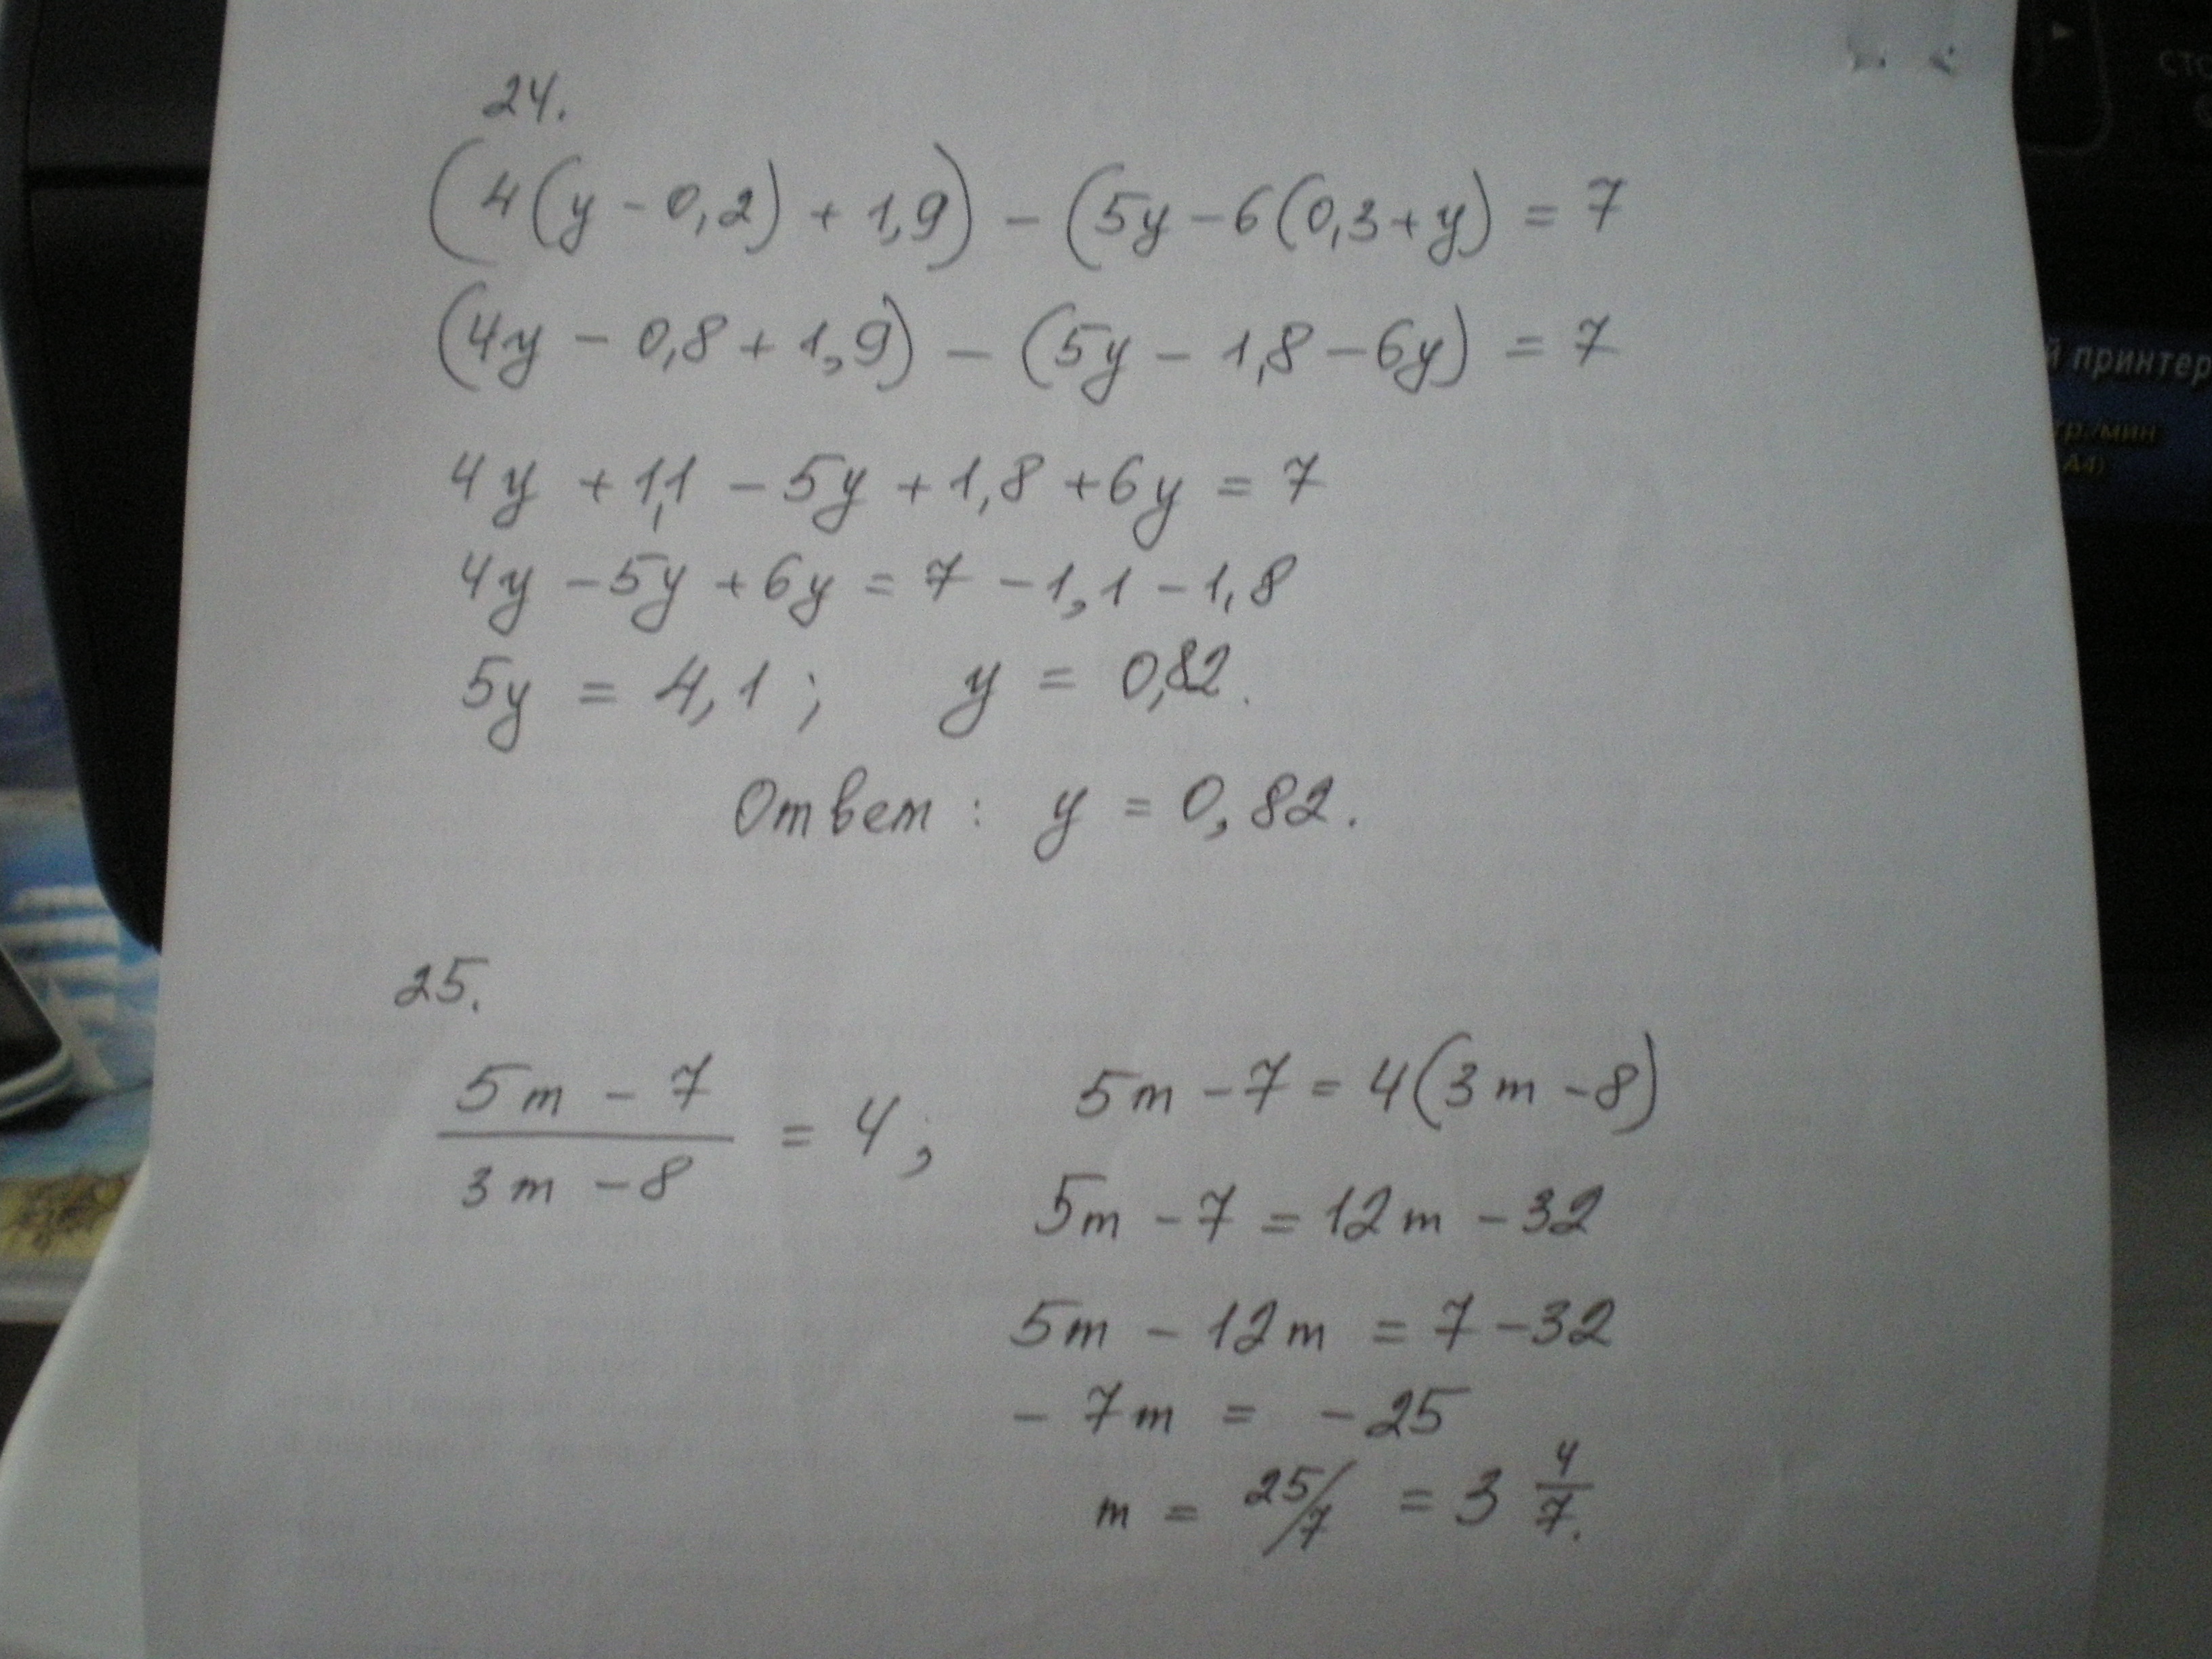 24.
(4(y - 0,2) + 1,9) - (5y - 6(0,3 + y) = 7
(4y - 0,8 + 1,9) - (5y - 1,8 - 6y) = 7
4y + 1,1 - 5y + 1,8 + 6y = 7
4y - 5y + 6y = 7 - 1,1 - 1,8
5y = 4,1 ; y = 0,82.
Ответ : y = 0,82.
25.
(5m - 7)/(3m - 8) = 4 ; 5m - 7 = 4(3m - 8)
5m - 7 = 12m - 32
5m - 12m = 7 - 32
- 7m = - 25
m = 25/7 = 3 4/7.
й принтер